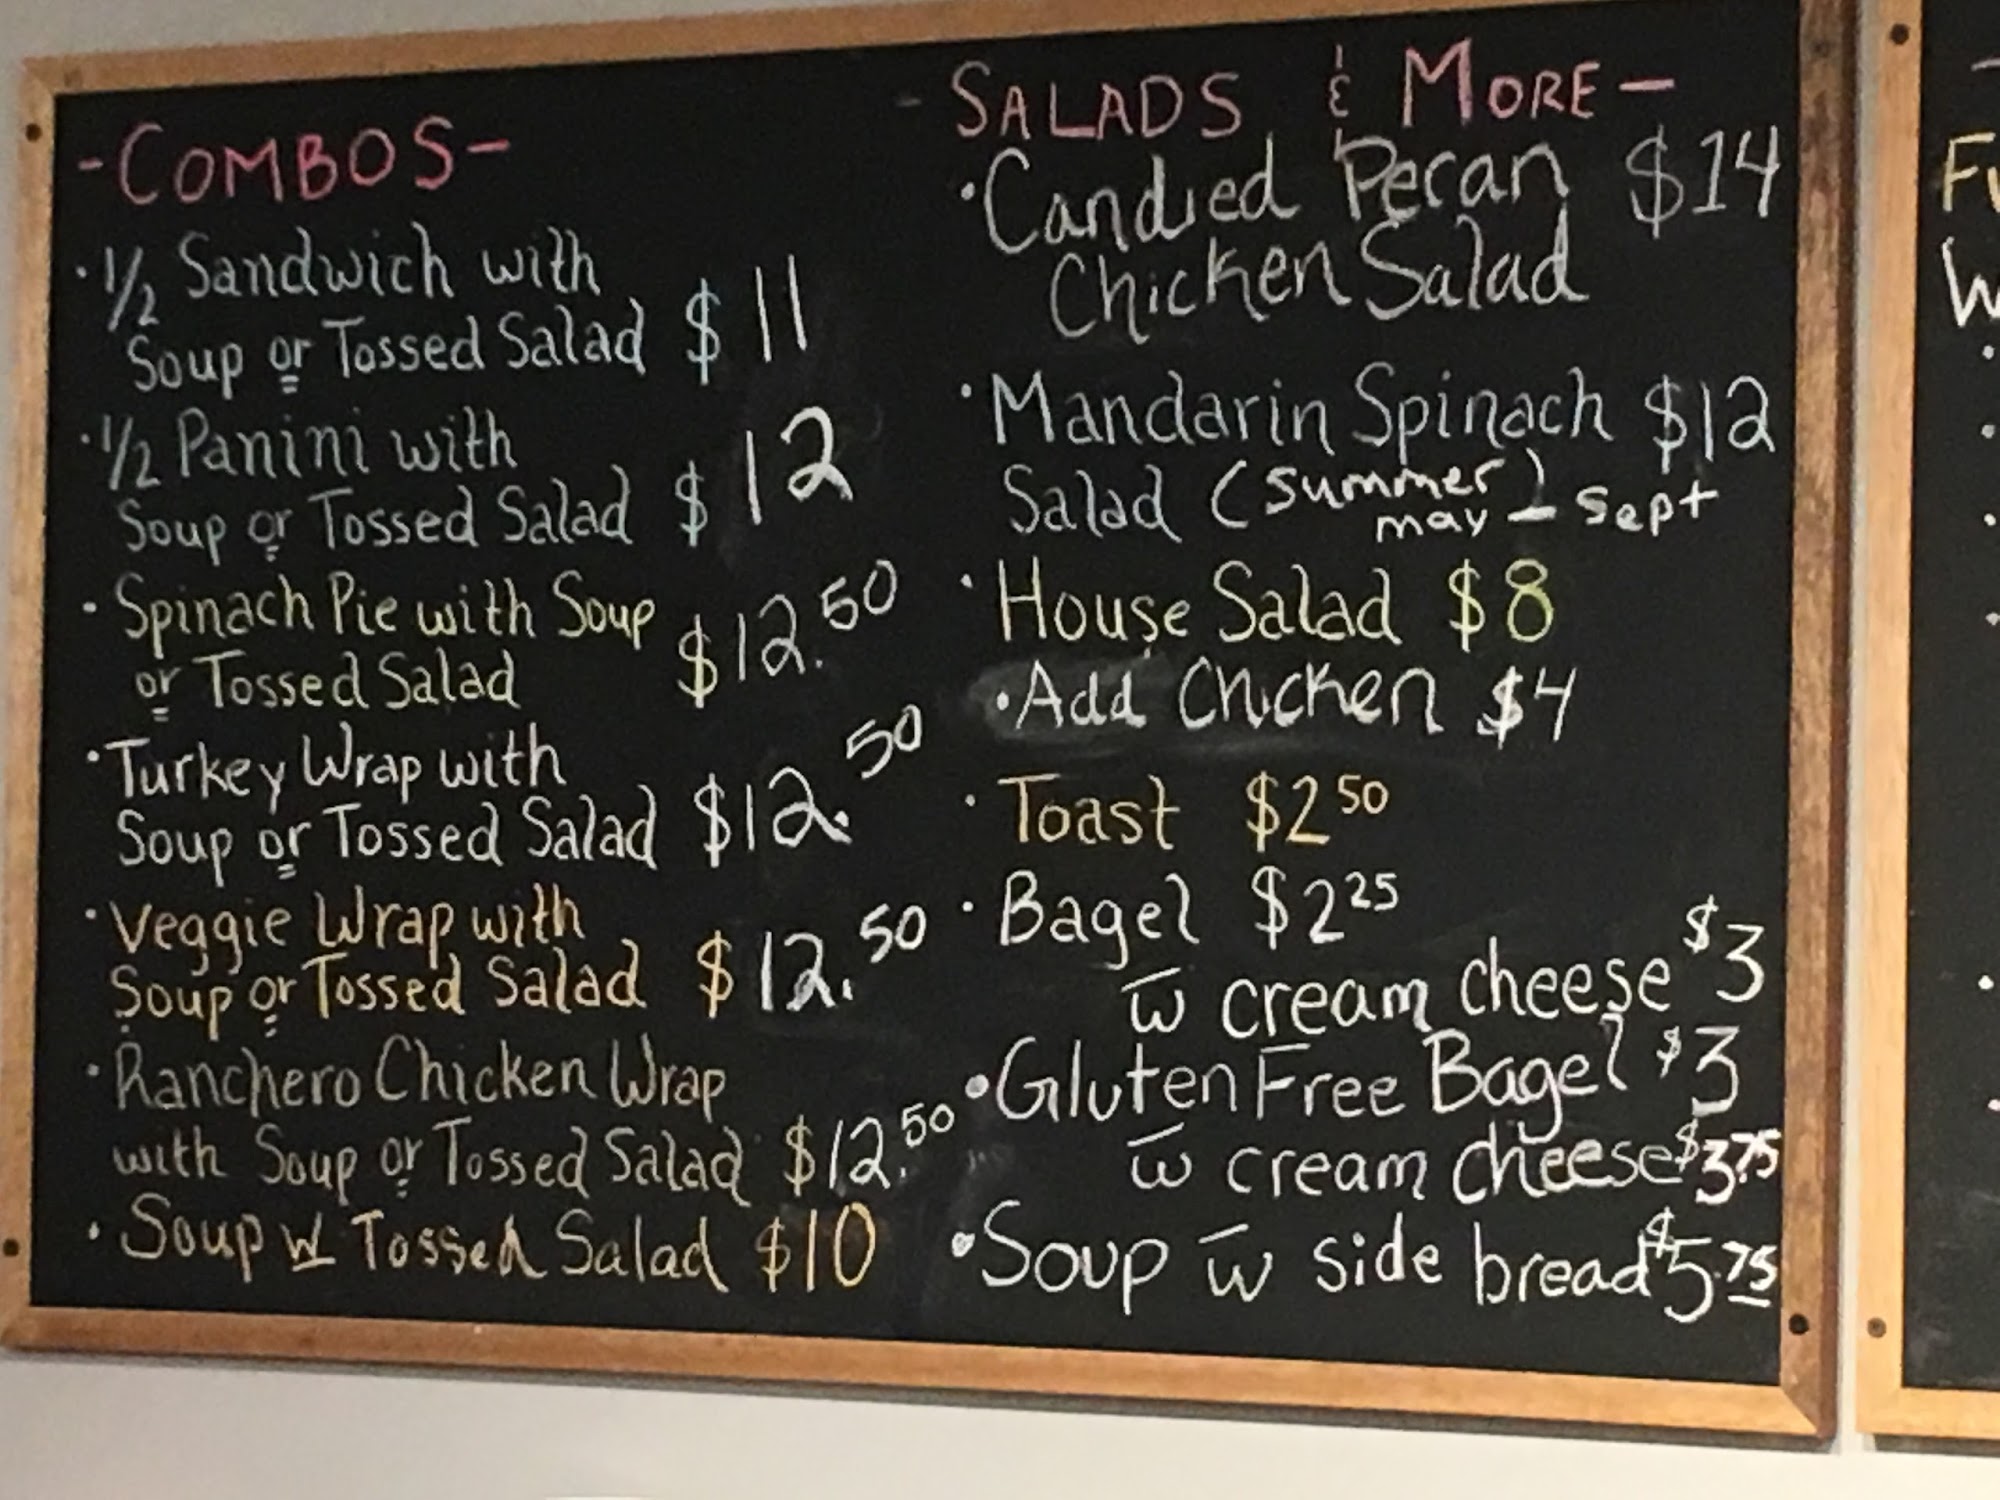 -COMBOS-
· 1/2 Sandwich with
Soup or Tossed Salad $11
· 1/2 Panini with
Soup or Tossed Salad $12
· Spinach Pie with Soup
or Tossed Salad $12.50
· Turkey Wrap with
Soup or Tossed Salad $12.50
· Veggie Wrap with
Soup or Tossed Salad $12.50
· Ranchero Chicken Wrap
with Soup or Tossed Salad $12.50
· Soup w/ Tossed Salad $10
- SALADS & MORE -
· Candied Pecan $14
Chicken Salad
· Mandarin Spinach $12
Salad (summer)
may - Sept
· House Salad $8
· Add Chicken $4
· Toast $2 50
· Bagel $2 25
w̄ cream cheese $3
· Gluten Free Bagel $3
w̄ cream cheese $3.75
· Soup w̄ side bread $5.75